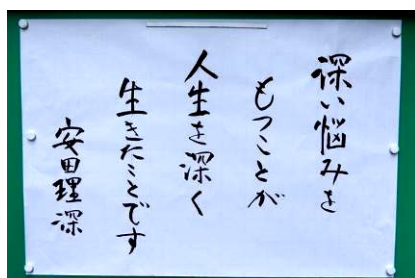 深い悩みを
もつことが
人生を深く
生きたことです
安田理深